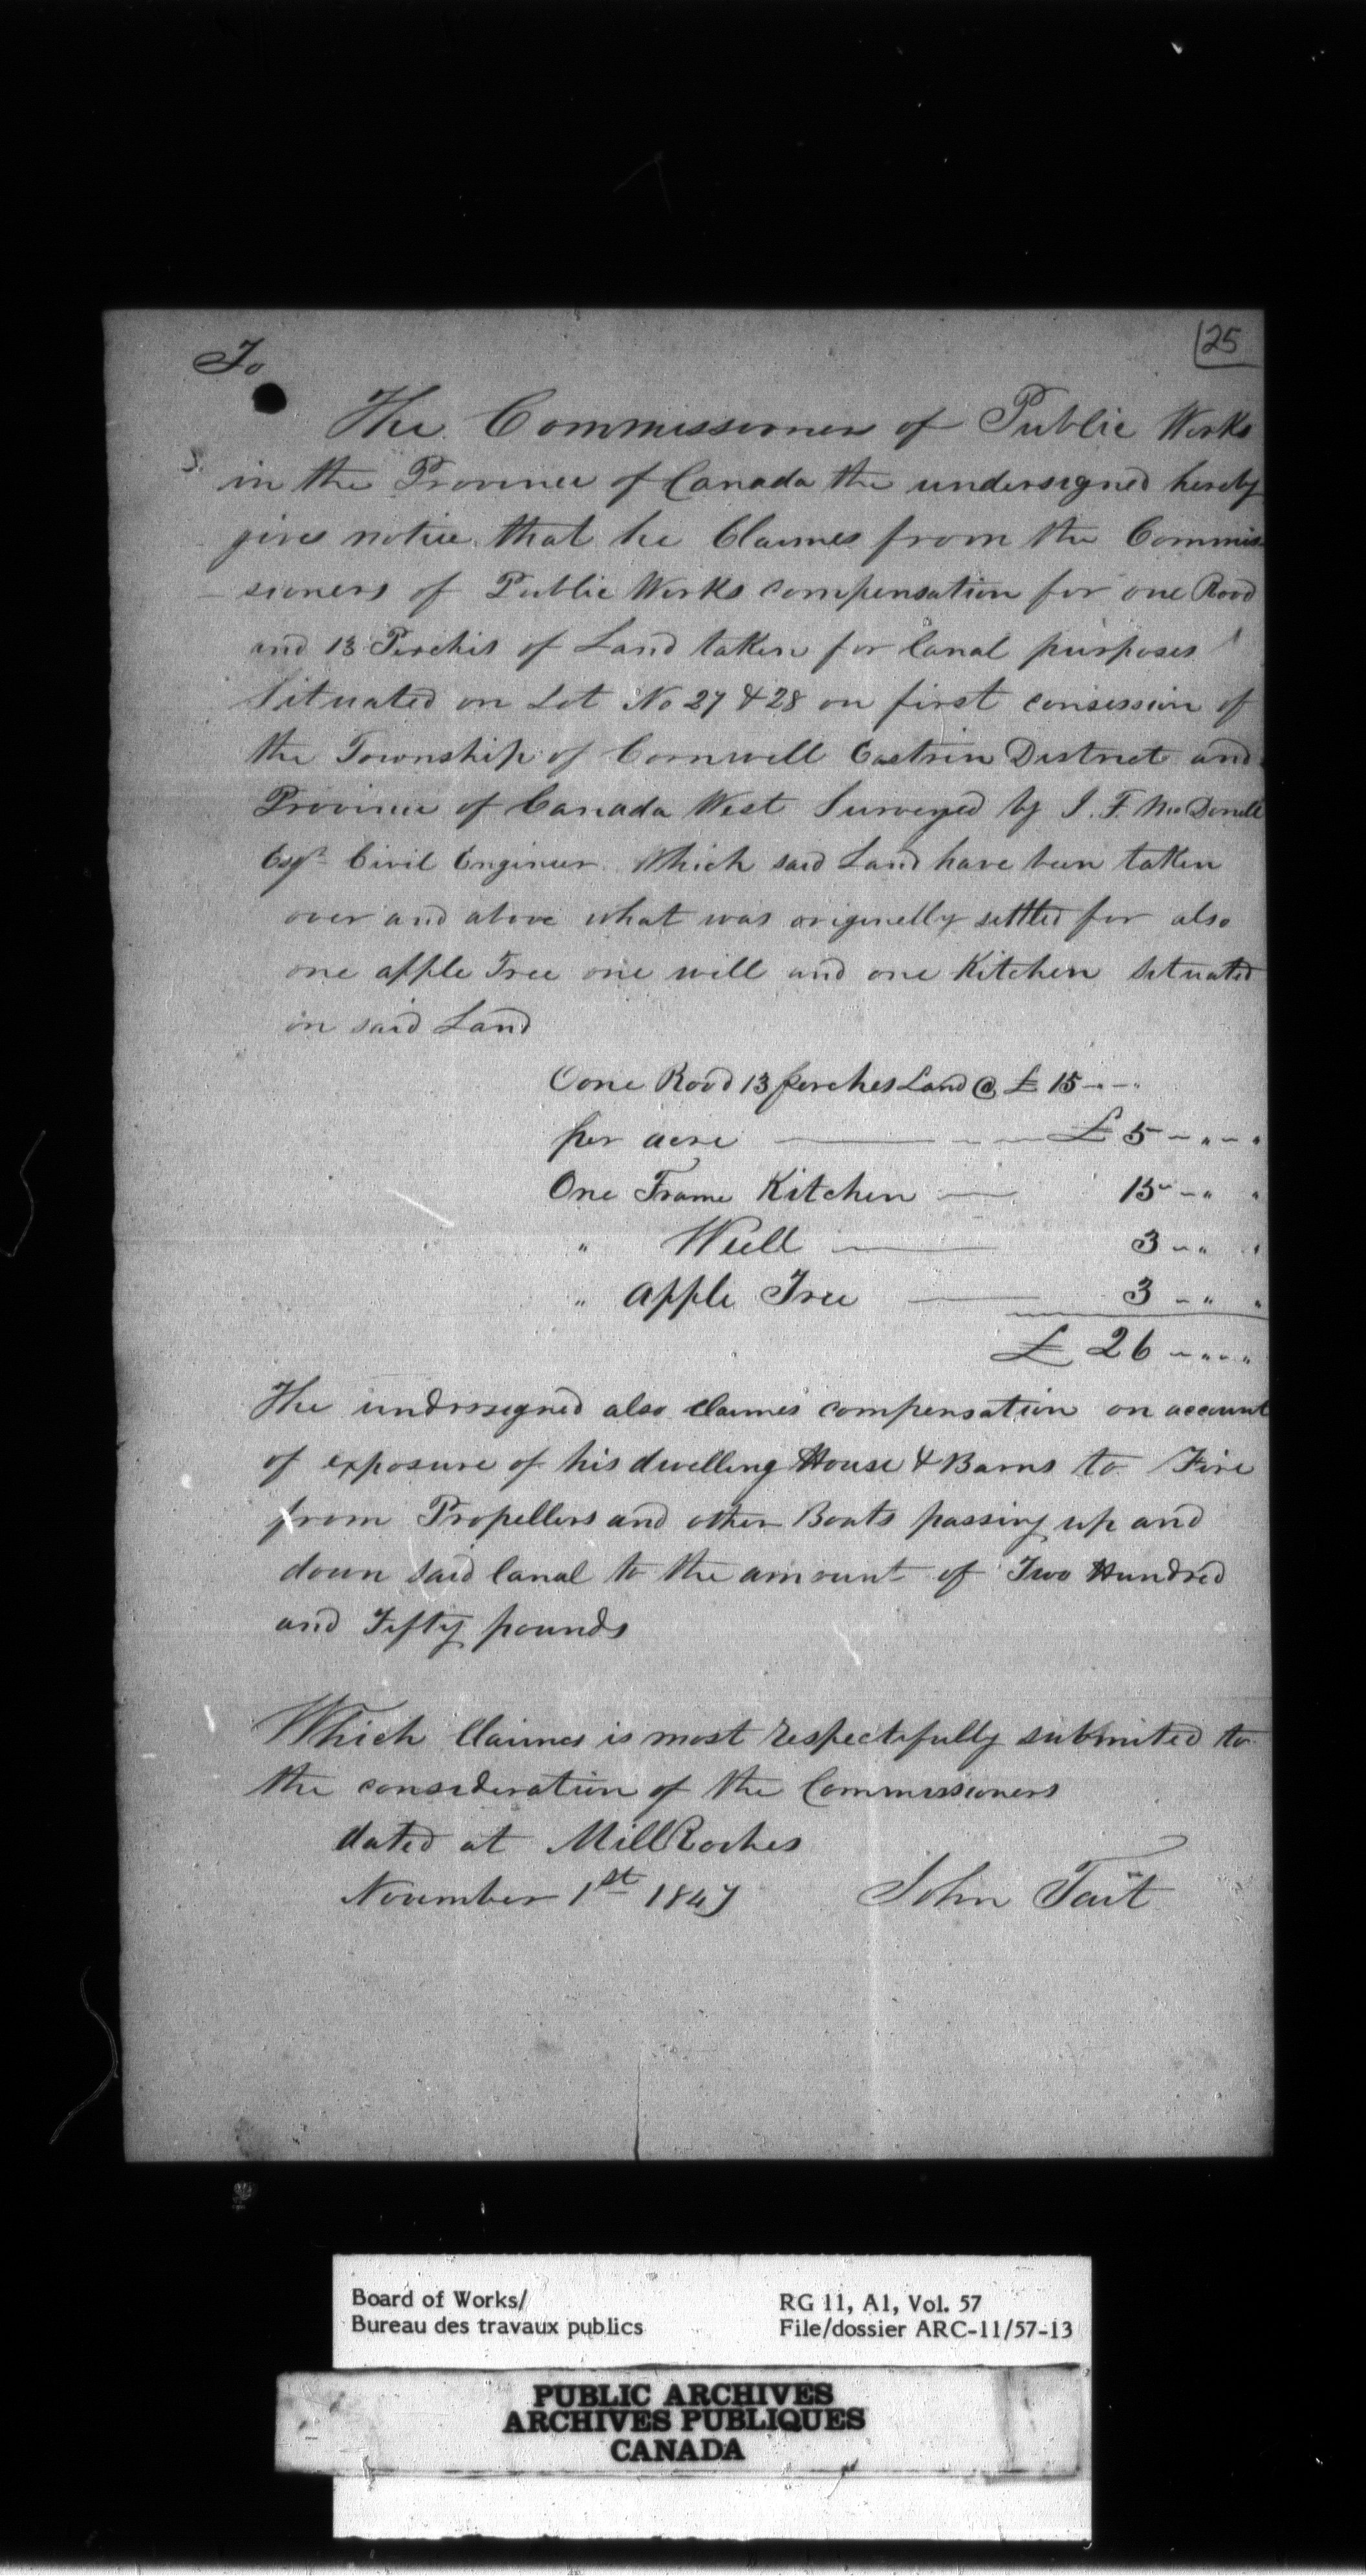 25
To
The Commissioners of Public Works
in the Province of Canada the undersigned hereby
gives notice that he Claimes from the Commis-
sioners of Public Works compensation for one Rood
and 13 Perchis of Land taken for Canal purposes
Situated on Lot No 27 & 28 on first consession of
the Township of Cornwell Eastrin District and
Province of Canada West Surveyed by J. F. McDonell
Esqr. Civil Engineer Which said Land have been taken
over and above what was originelly settled for also
one apple Tree one will and one Kitchen situated
on said Land
Oone Rood 13 perches Land @ £ 15 - - -
per acre — - - — £ 5 - " - "
One Frame Kitchen — 15 - " "
" Well — 3 - " "
" apple Tree — 3 - " "
£ 26 - " - "
The undersigned also claimes compensation on account
of exposure of his dwelling House & Barns to Fire
from Propellers and other Boats passing up and
down said Canal to the amount of Two Hundred
and Fifty pounds
Which Claimes is most respectifully submited to
the consideration of the Commissioners
dated at Mill Roches
November 1st 1847 John Tait
Board of Works/
Bureau des travaux publics
RG 11, A1, Vol. 57
File/dossier ARC-11/57-13
PUBLIC ARCHIVES
ARCHIVES PUBLIQUES
CANADA